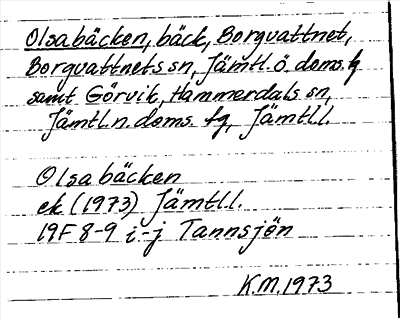 Olsabäcken, bäck, Borgvattnet,
Borgvattnets sn, Jämtl. ö. doms. fg
samt Görvik, Hammerdals sn,
Jämtl. n. doms. fg, Jämtl l.
Olsabäcken
ek (1973) Jämtl l.
19F 8-9 i-j Tannsjön
K.M. 1973